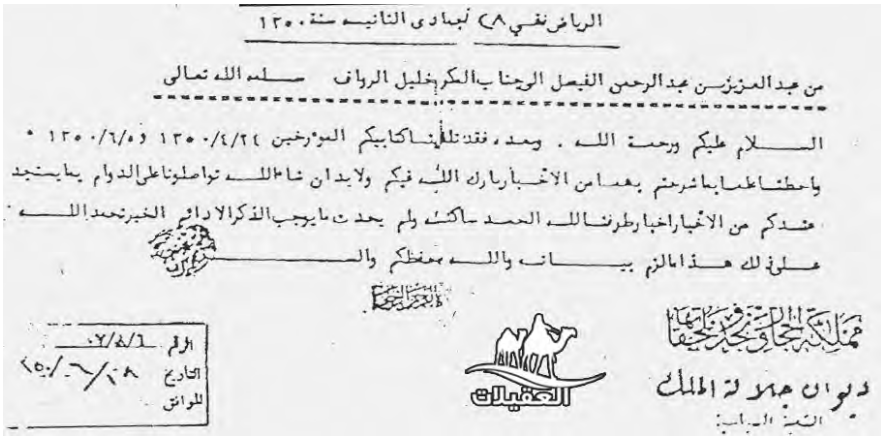 الرياض في ٢٨ جمادى الثانيه سنة ١٣٥٠
من عبد العزيز بن عبد الرحمن الفيصل الى جناب المكرم خليل الرواف سلمه الله تعالى
السلام عليكم ورحمة الله . وبعد، فقد تلقينا كتابيكم المؤرخين ١٣٥٠/٤/٢٤ و ١٣٥٠/٦/٥ .
واحطنا علما بما شرحتم بهما من الاخبار بارك الله فيكم ولابد ان شاء الله تواصلونا على الدوام بما يستجد
عندكم من الاخبار اخبار طرفنا لله الحمد ساكنه ولم يحدث ما يوجب الذكر الا دائم الخير نحمد الله
على ذلك هذا ما لزم بيانه والله يحفظكم والسـلام
مملكة الحجاز ونجد وملحقاتها
ديوان جلالة الملك
الشعبة السياسية
العقيلات
الرقم
التاريخ ٢٨/٠٦/٣٥٠
الموافق